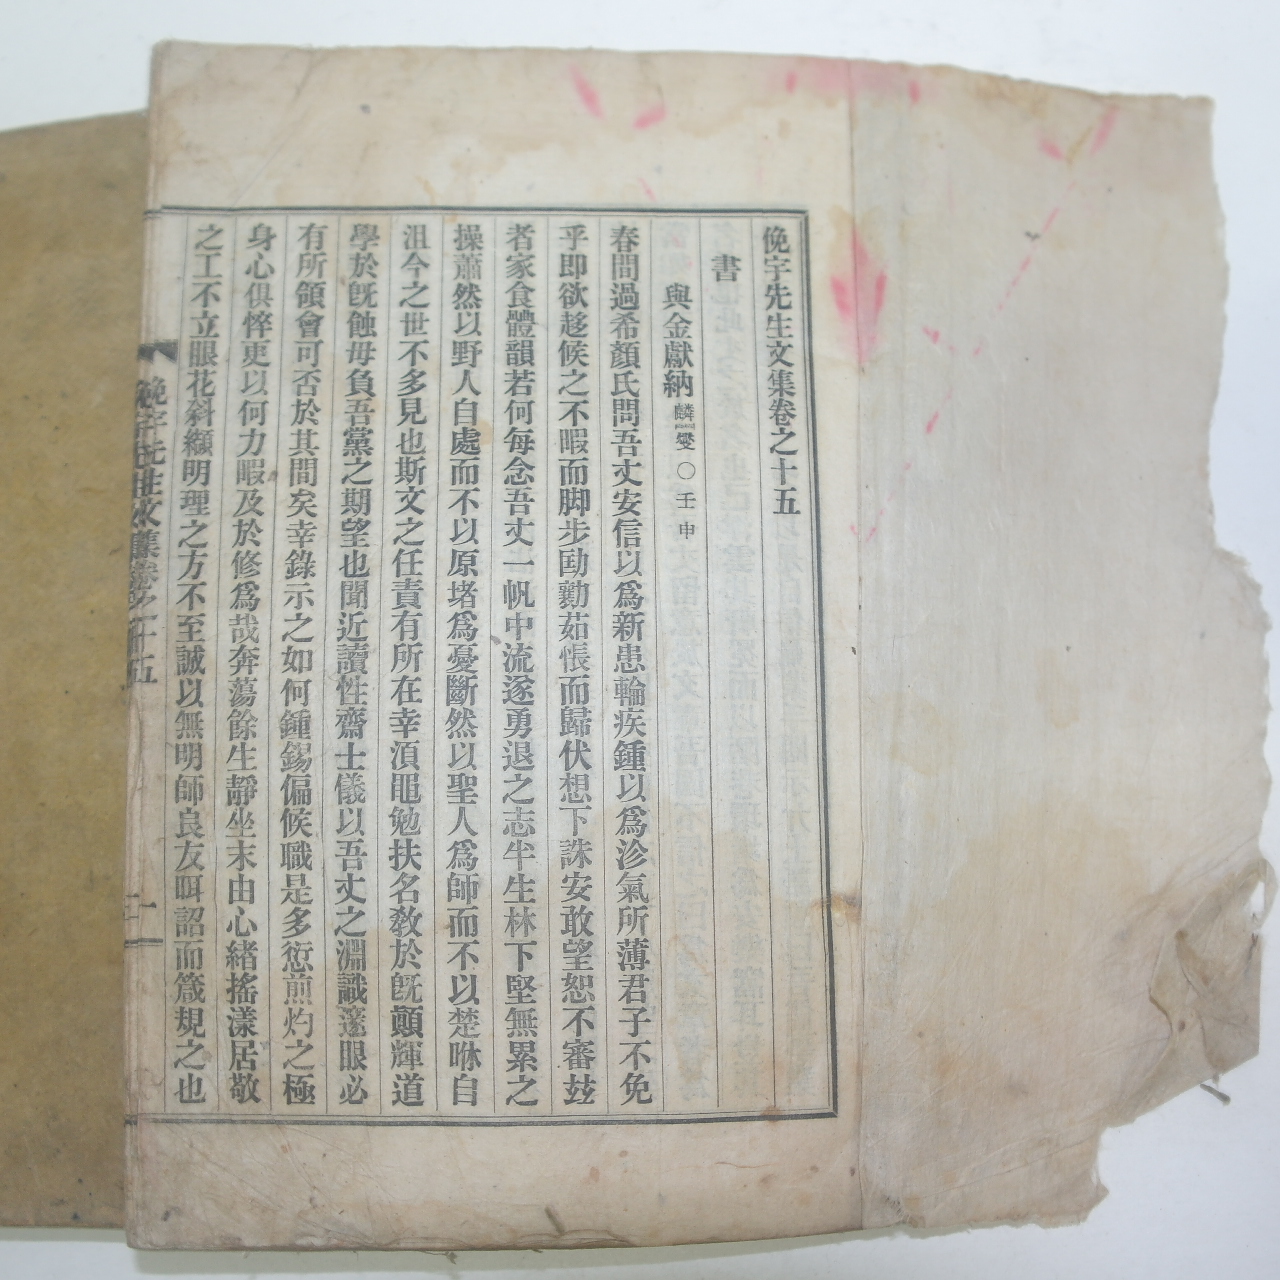 俛宇先生文集卷之十五
書
與金獻納 麟燮○壬申
春間過希顏氏問吾丈安信以爲新患輪疾鍾以爲沴氣所薄君子不免
乎卽欲趍候之不暇而脚步劻勷茹悵而歸伏想下誅安敢望恕不審玆
者家食體韻若何每念吾丈一帆中流遂勇退之志半生林下堅無累之
操蕭然以野人自處而不以原堵爲憂斷然以聖人爲師而不以楚咻自
沮今之世不多見也斯文之任責有所在幸湏黽勉扶名敎於旣顚輝道
學於旣蝕毋負吾黨之期望也聞近讀性齋士儀以吾丈之淵識邃眼必
有所領會可否於其間矣幸錄示之如何鍾錫偏候職是多愆煎灼之極
身心俱悴更以何力暇及於修爲哉奔蕩餘生靜坐末由心緖搖漾居敬
之工不立眼花斜纈明理之方不至誠以無明師良友咡詔而箴規之也
俛宇先生文集卷之十五
一